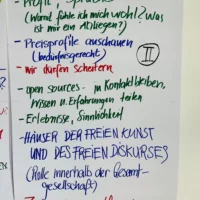 (Wann fühle ich mich wohl? Was
ist mir ein Anliegen?)
- Preisprofile anschauen
(bedürfnisgerecht)
II
- wir dürfen scheitern
- open sources - in Kontakt bleiben,
Wissen u. Erfahrungen teilen
- Erlebnisse, Sinnlichkeit
- HÄUSER DER FREIEN KUNST
UND DES FREIEN DISKURSES
(Rolle innerhalb der Gesamt-
gesellschaft)